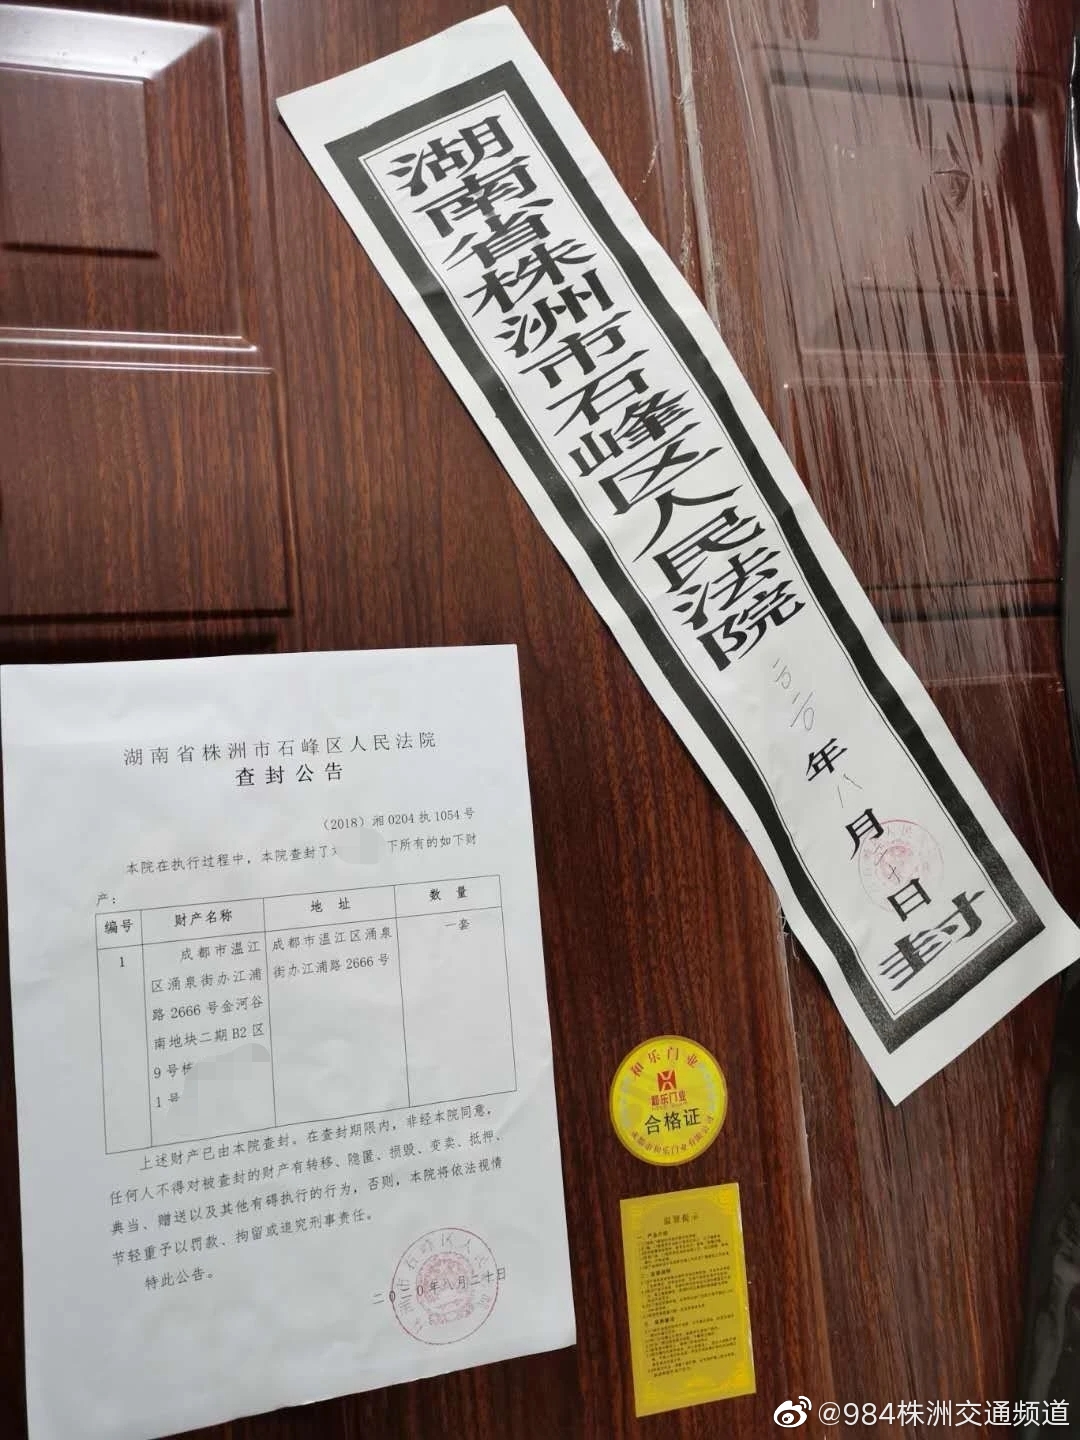 湖南省株洲市石峰区人民法院
二〇二〇年八月二十日
封
湖南省株洲市石峰区人民法院
查封公告
（2018）湘0204执1054号
本院在执行过程中，本院查封了 下所有的如下财
产：
编号 财产名称 地址 数量
1
成都市温江
区涌泉街办江浦
路2666号金河谷
南地块二期B2区
9号
1号
成都市温江区涌泉
街办江浦路2666号
一套
上述财产已由本院查封。在查封期限内，非经本院同意，
任何人不得对被查封的财产有转移、隐匿、损毁、变卖、抵押、
典当、赠送以及其他有碍执行的行为，否则，本院将依法视情
节轻重予以罚款、拘留或追究刑事责任。
特此公告。
二〇二〇年八月二十日
和乐门业
和乐门业
合格证
成都市和乐门业有限公司
温馨提示
@984株洲交通频道